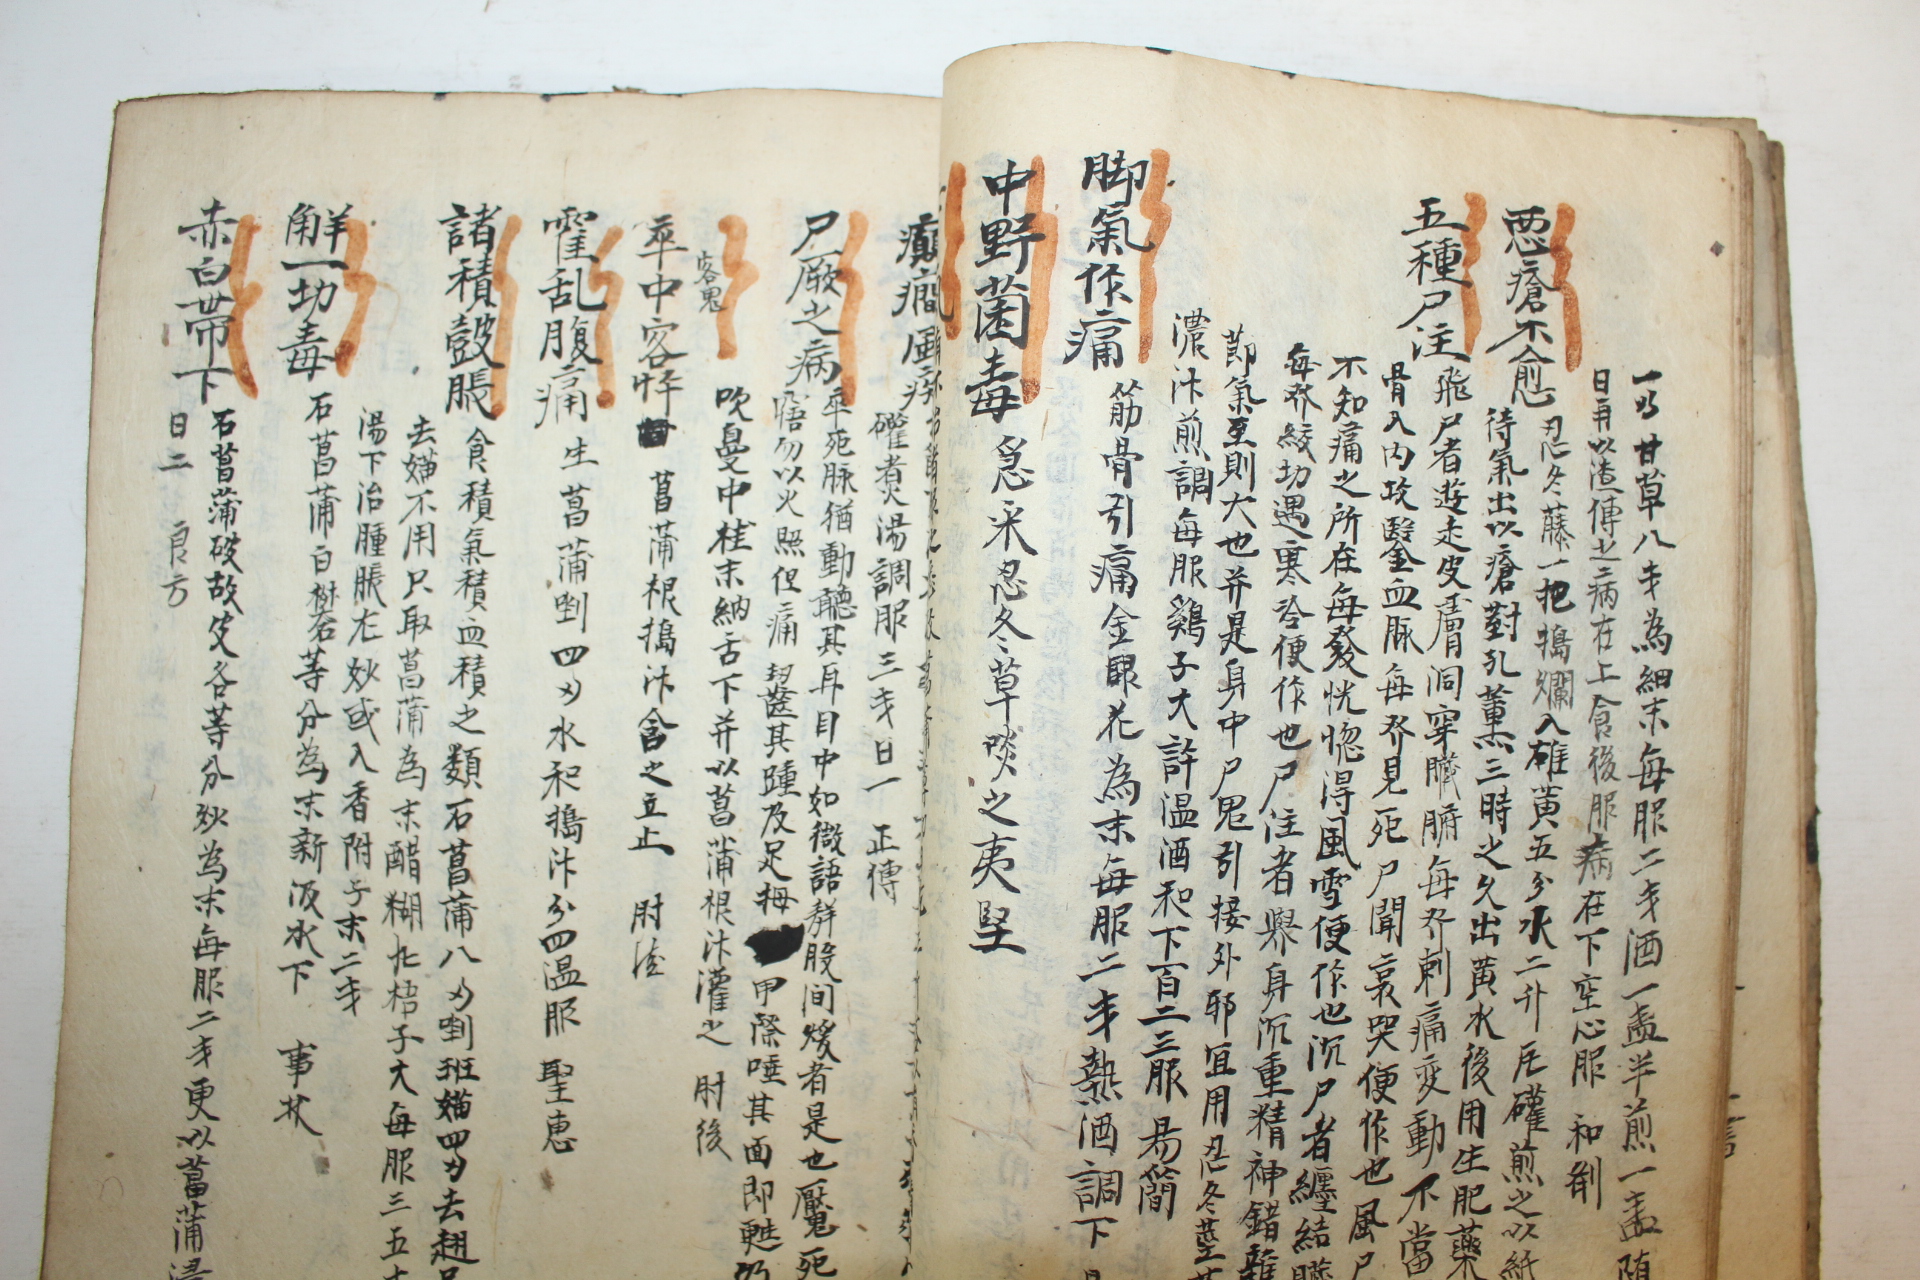 一方甘草八戔為細末每服二戔酒一盞半煎一盞随
日再以渣傅之病在上食後服病在下空心服 和劑
惡瘡不愈 忍冬藤一把搗爛入雄黃五分水二升瓦礶煎之以紙
待氣出以瘡對孔薰三時之久出黃水後用生肥藥
五種尸注 飛尸者遊走皮膚洞穿臓腑每發刺痛变動不當
骨入內攻鑿血脉每發見死尸聞哀哭便作也風尸
不知痛之所在每發恍惚得風雪便作也沉尸者纏結臓
每發絞切遇寒冷便作也尸注者舉身沉重精神錯雜
節氣至則大也并是身中尸鬼引接外邪宜用忍冬莖
濃汁煎調每服鷄子大許温酒和下百二三服 易簡
脚氣作痛 筋骨引痛金銀花為末每服二戔熱酒調下
中野菌毒 急采忍冬草啖之夷堅
癲癎風疾
礶煮湯調服三戔日一 正傳
尸厥之病 卒死脉猶動聽其耳目中如微語群股间煖者是也魘死
悟勿以火照但痛囓其踵及足拇甲際唾其面即甦
吹鼻中桂末納舌下并以菖蒲根汁灌之 肘後
客鬼
卒中客忤 菖蒲根搗汁含之立止 肘後
霍乱腹痛 生菖蒲剉四刄水和搗汁分四温服 聖惠
諸積皷脹 食積氣積血積之類石菖蒲八刄剉班猫四刄去翅
去猫不用只取菖蒲為末醋糊化梧子大每服三五
湯下治腫脹尤妙或入香附子末二戔
觧一切毒 石菖蒲白礬等分為末新汲水下 事林
赤白帶下 石菖蒲破故紙各等分炒為末每服二戔更以菖蒲浸
日二 良方